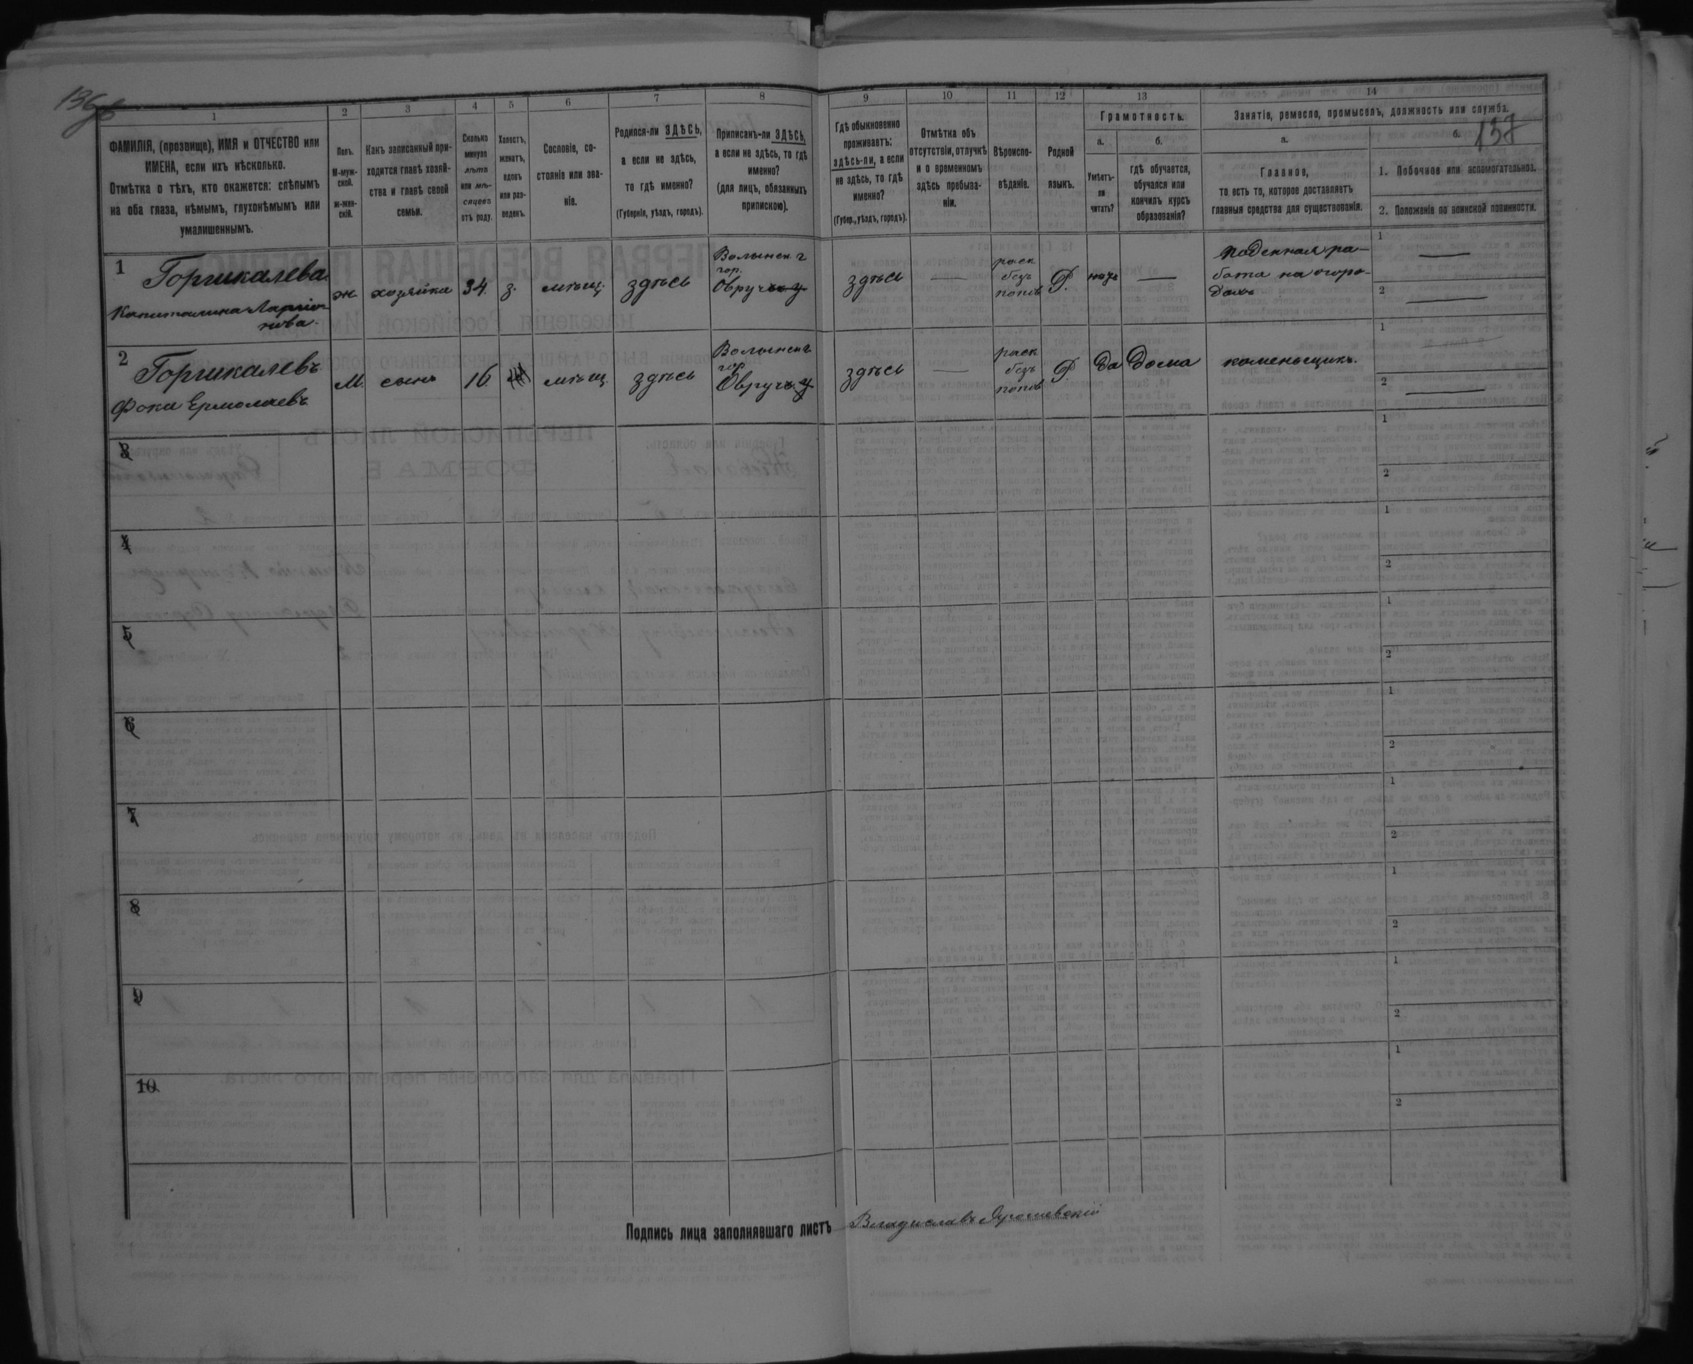 136 об
137
1
2
3
4
5
6
7
8
9
10
11
12
13
14
ФАМИЛІЯ, (прозвище), ИМЯ и ОТЧЕСТВО или
ИМЕНА, если ихъ нѣсколько.
Отмѣтка о тѣхъ, кто окажется: слѣпымъ
на оба глаза, нѣмымъ, глухонѣмымъ или
умалишеннымъ.
Полъ.
М-муж-
ской.
ж-жен-
скій.
Какъ записанный при-
ходится главѣ хозяй-
ства и главѣ своей
семьи.
Сколько
минуло
лѣтъ
или мѣ-
сяцевъ
отъ роду.
Холостъ,
женатъ,
вдовъ
или раз-
веденъ.
Сословіе, со-
стояніе или зва-
ніе.
Родился-ли ЗДѢСЬ,
а если не здѣсь,
то гдѣ именно?
(Губернія, уѣздъ, городъ).
Приписанъ-ли ЗДѢСЬ,
а если не здѣсь, то гдѣ
именно?
(для лицъ, обязанныхъ
припискою).
Гдѣ обыкновенно
проживаетъ:
здѣсь-ли, а если
не здѣсь, то гдѣ
именно?
(Губер., уѣздъ, городъ).
Отмѣтка объ
отсутствіи, отлучкѣ
и о временномъ
здѣсь пребыва-
ніи.
Вѣроиспо-
вѣданіе.
Родной
языкъ.
Грамотность.
а.
б.
Умѣетъ-
ли
читать?
гдѣ обучается,
обучался или
кончилъ курсъ
образованія?
Занятіе, ремесло, промыселъ, должность или служба.
а.
б.
Главное,
то есть то, которое доставляетъ
главныя средства для существованія.
1. Побочное или вспомогательное.
2. Положеніе по воинской повинности.
1 Горшкалева
Капитолина Ларіо-
нова.
ж хозяйка 34. з. мѣщ. здѣсь
Волынск г
гор.
Овручъ у
здѣсь —
раск
безъ
попов
Р. —
поденная ра-
бота на огоро-
дахъ
1 —
2 —
2 Горшкалевъ
Фока Ермолаевъ
М сынъ 16 мѣщ здѣсь
Волынск г
гор
Овручъ у
здѣсь —
раск
безъ
попов
Р да дома каменьщикъ
1
2 —
3
1
2
4
1
2
5
1
2
6
1
2
7
1
2
8
1
2
9
1
2
10
1
2
Подпись лица заполнявшаго листъ Владиславъ Ярошевскій